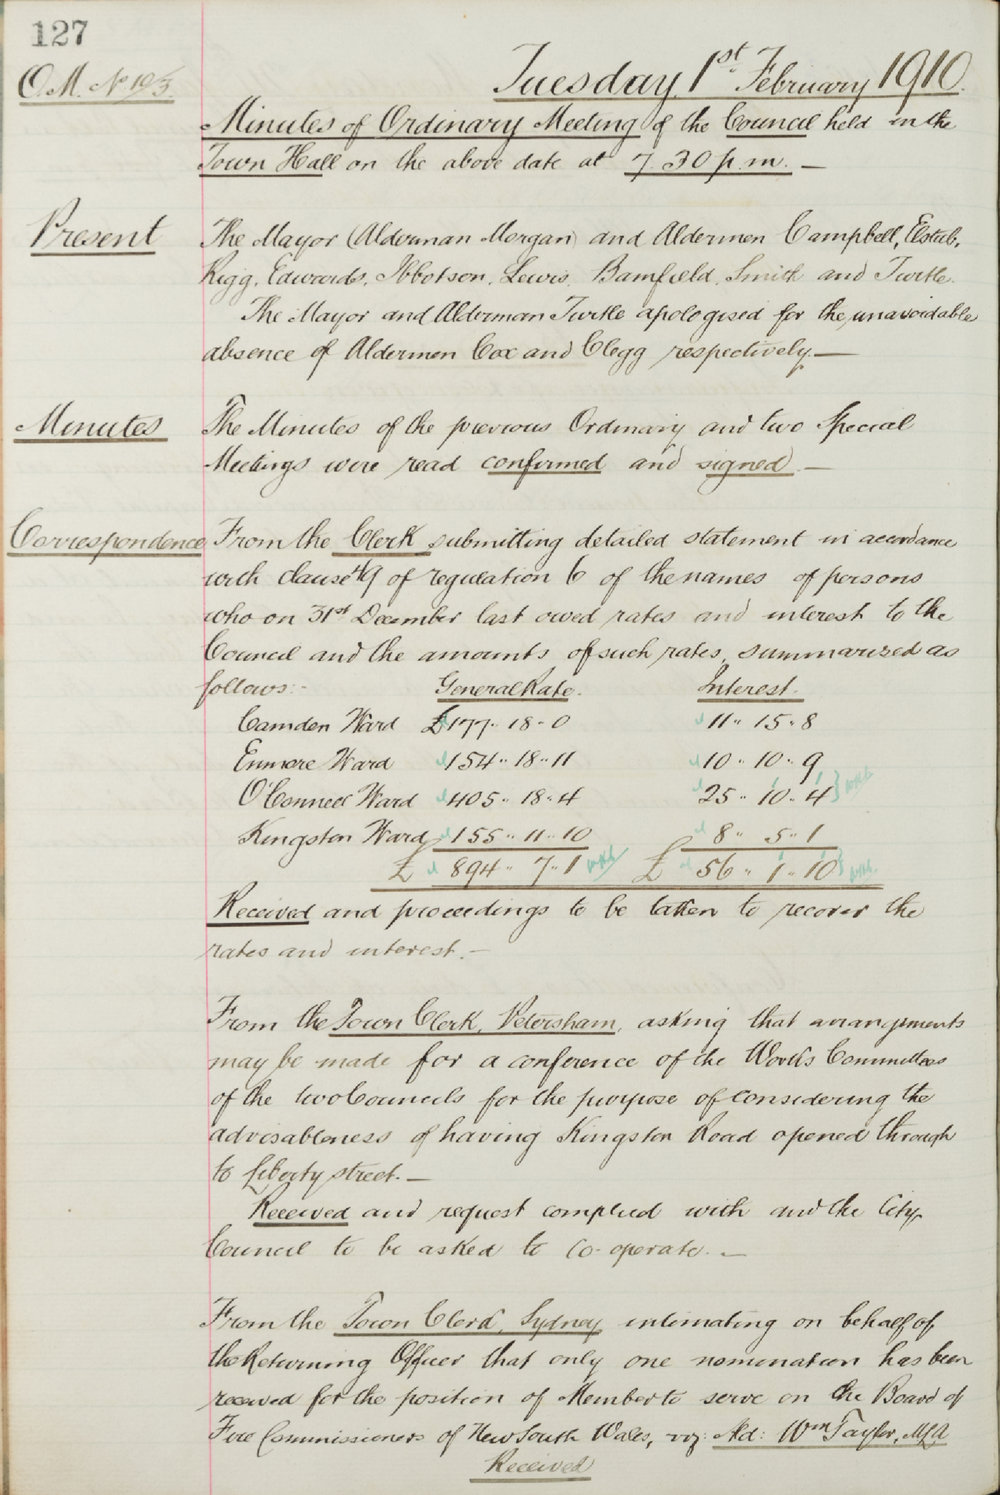 127
O.M. No 10/3
Tuesday 1st February 1910.
Minutes of Ordinary Meeting of the Council held in the
Town Hall on the above date at 7.30 p.m. —
Present
The Mayor (Alderman Morgan) and Aldermen Campbell, Elstub,
Rigg, Edwards, Ibbotson, Lewis, Bamfield, Smith and Turtle.
The Mayor and Alderman Turtle apologised for the unavoidable
absence of Aldermen Cox and Clegg respectively. —
Minutes
The Minutes of the previous Ordinary and two Special
Meetings were read confirmed and signed. —
Correspondence
From the Clerk submitting detailed statement in accordance
with clause 49 of regulation 6 of the names of persons
who on 31st December last owed rates and interest to the
Council and the amounts of such rates, summarised as
follows:- General Rate. Interest.
Camden Ward £177.. 18 - 0 11.. 15.. 8
Enmore Ward 154.. 18.. 11 10.. 10.. 9
O'Connell Ward 405.. 18.. 4 25.. 10.. 4
Kingston Ward 155.. 11.. 10 8.. 5.. 1
£ 894.. 7.. 1 £ 56.. 1.. 10
Received and proceedings to be taken to recover the
rates and interest. —
From the Town Clerk, Petersham, asking that arrangements
may be made for a conference of the Works Committees
of the two Councils for the purpose of considering the
advisableness of having Kingston Road opened through
to Liberty street. —
Received and request complied with and the City
Council to be asked to co-operate. —
From the Town Clerk, Sydney, intimating on behalf of
the Returning Officer that only one nomination has been
received for the position of Member to serve on the Board of
Fire Commissioners of New South Wales, viz: Ald: Wm Taylor, MLA
Received